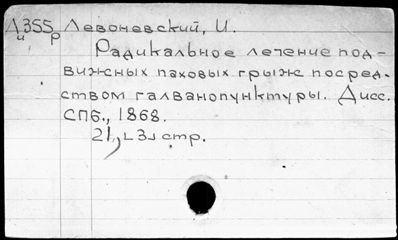 Л355 Левоневский, И.
и р
Радикальное лечение под-
вижных паховых грыж посред-
ством галванопунктуры. Дисс.
СПб., 1868.
21, L3 стр.